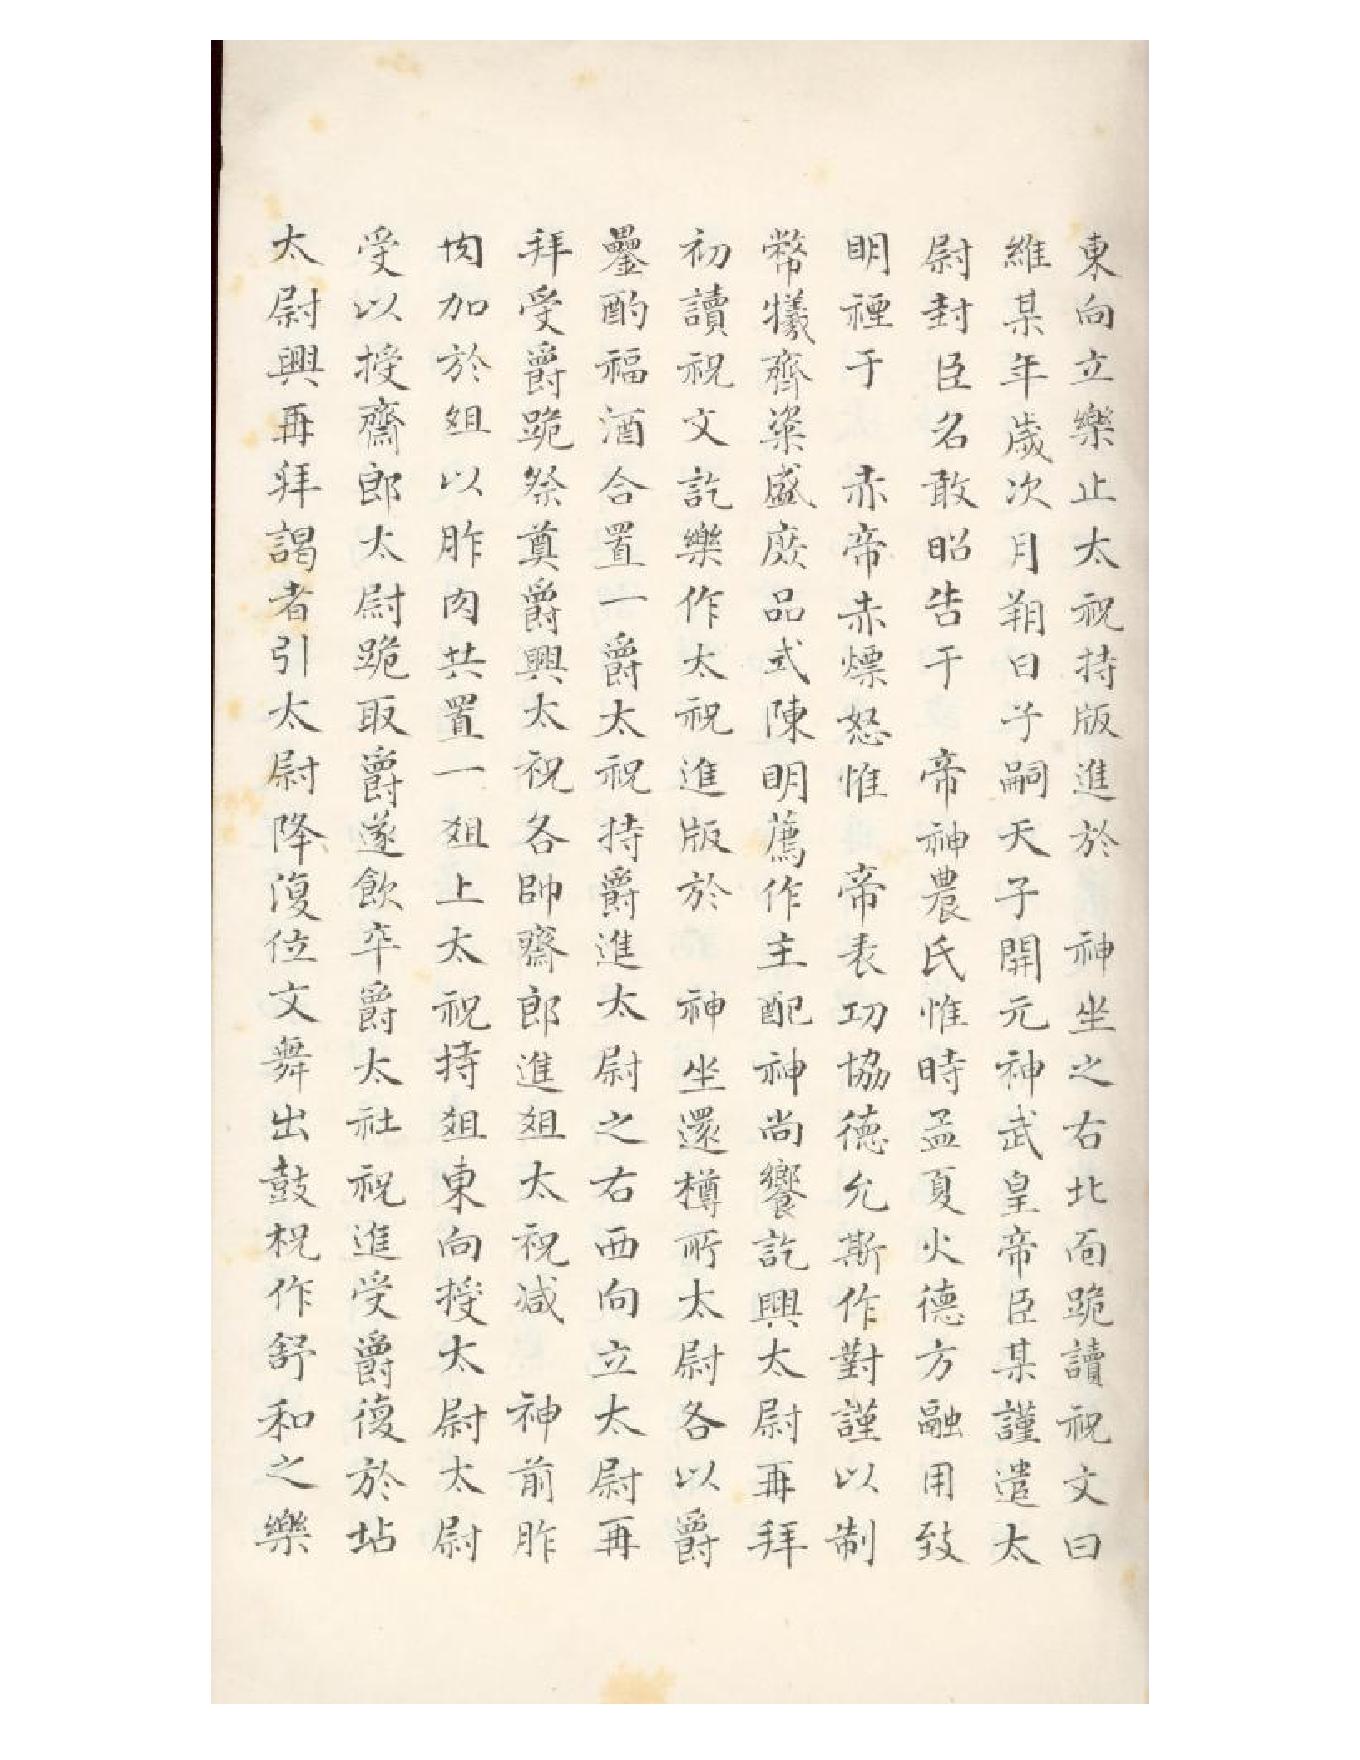 東向立樂止太祝持版進於　神坐之右北面跪讀祝文曰
維某年歲次月朔日子嗣天子開元神武皇帝臣某謹遣太
尉封臣名敢昭告于　帝神農氏惟時孟夏火德方融用致
明禋于　赤帝赤熛怒惟　帝表功協德允斯作對謹以制
幣犧齊粢盛庶品式陳明薦作主配神尚饗訖興太尉再拜
初讀祝文訖樂作太祝進版於　神坐還樽所太尉各以爵
罍酌福酒合置一爵太祝持爵進太尉之右西向立太尉再
拜受爵跪祭奠爵興太祝各帥齋郎進俎太祝減　神前胙
肉加於俎以胙肉共置一俎上太祝持俎東向授太尉太尉
受以授齋郎太尉跪取爵遂飲卒爵太社祝進受爵復於坫
太尉興再拜謁者引太尉降復位文舞出鼓柷作舒和之樂